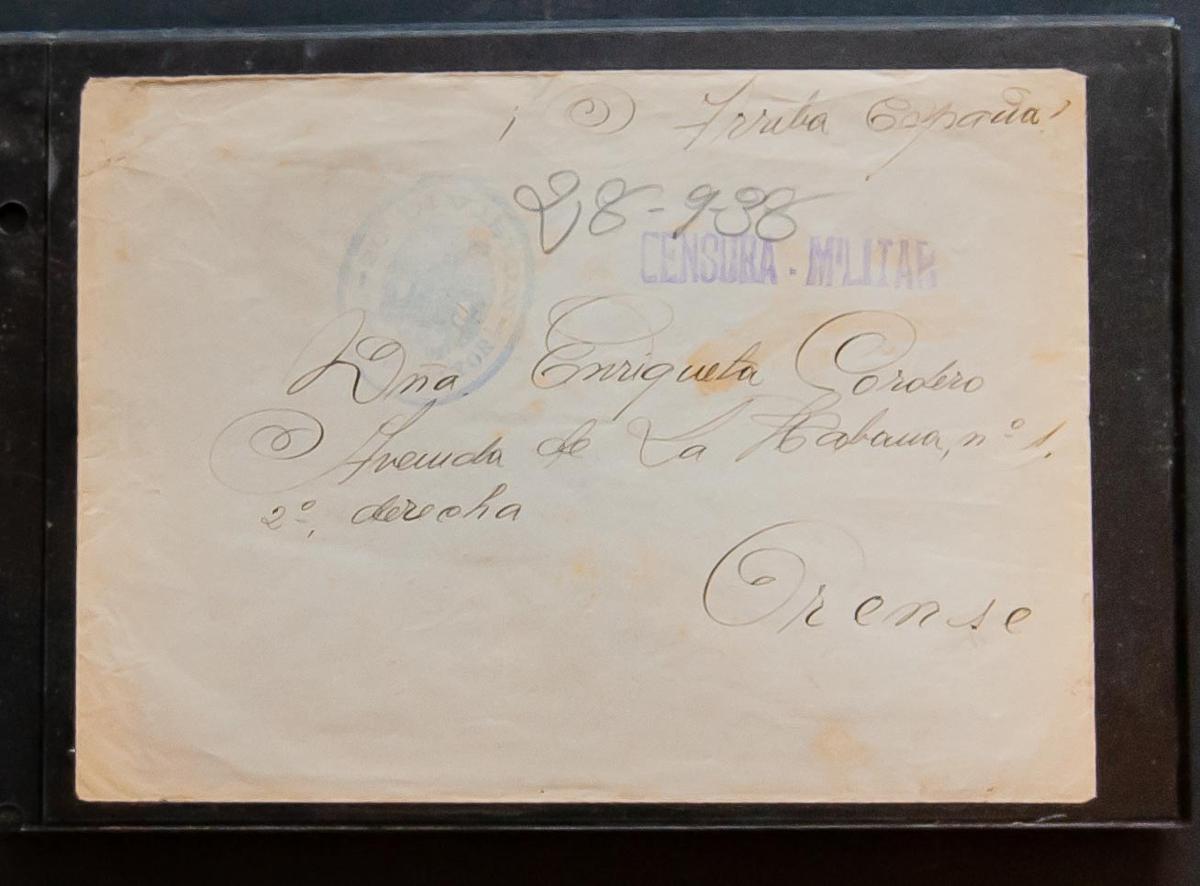 ¡ Arriba España!
28-9-38
CENSURA · MILITAR
Dña Enriqueta Cordero
Avenida de La Habana, nº 1.
2º, derecha
Orense